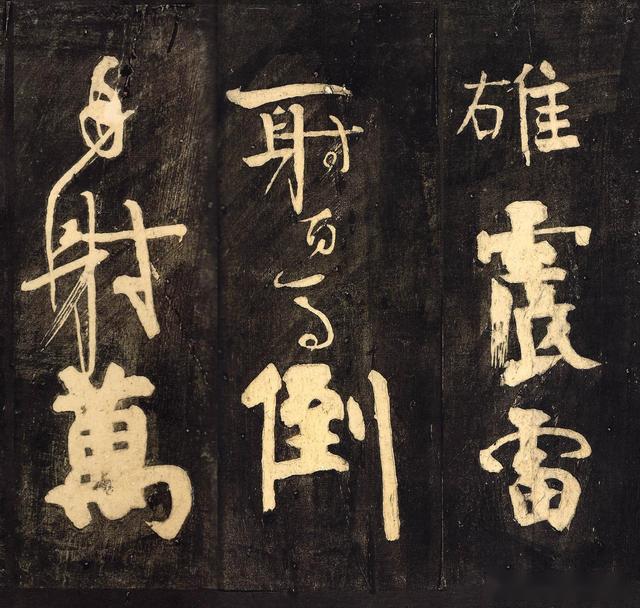 雄震雷
一射百馬倒
再射萬